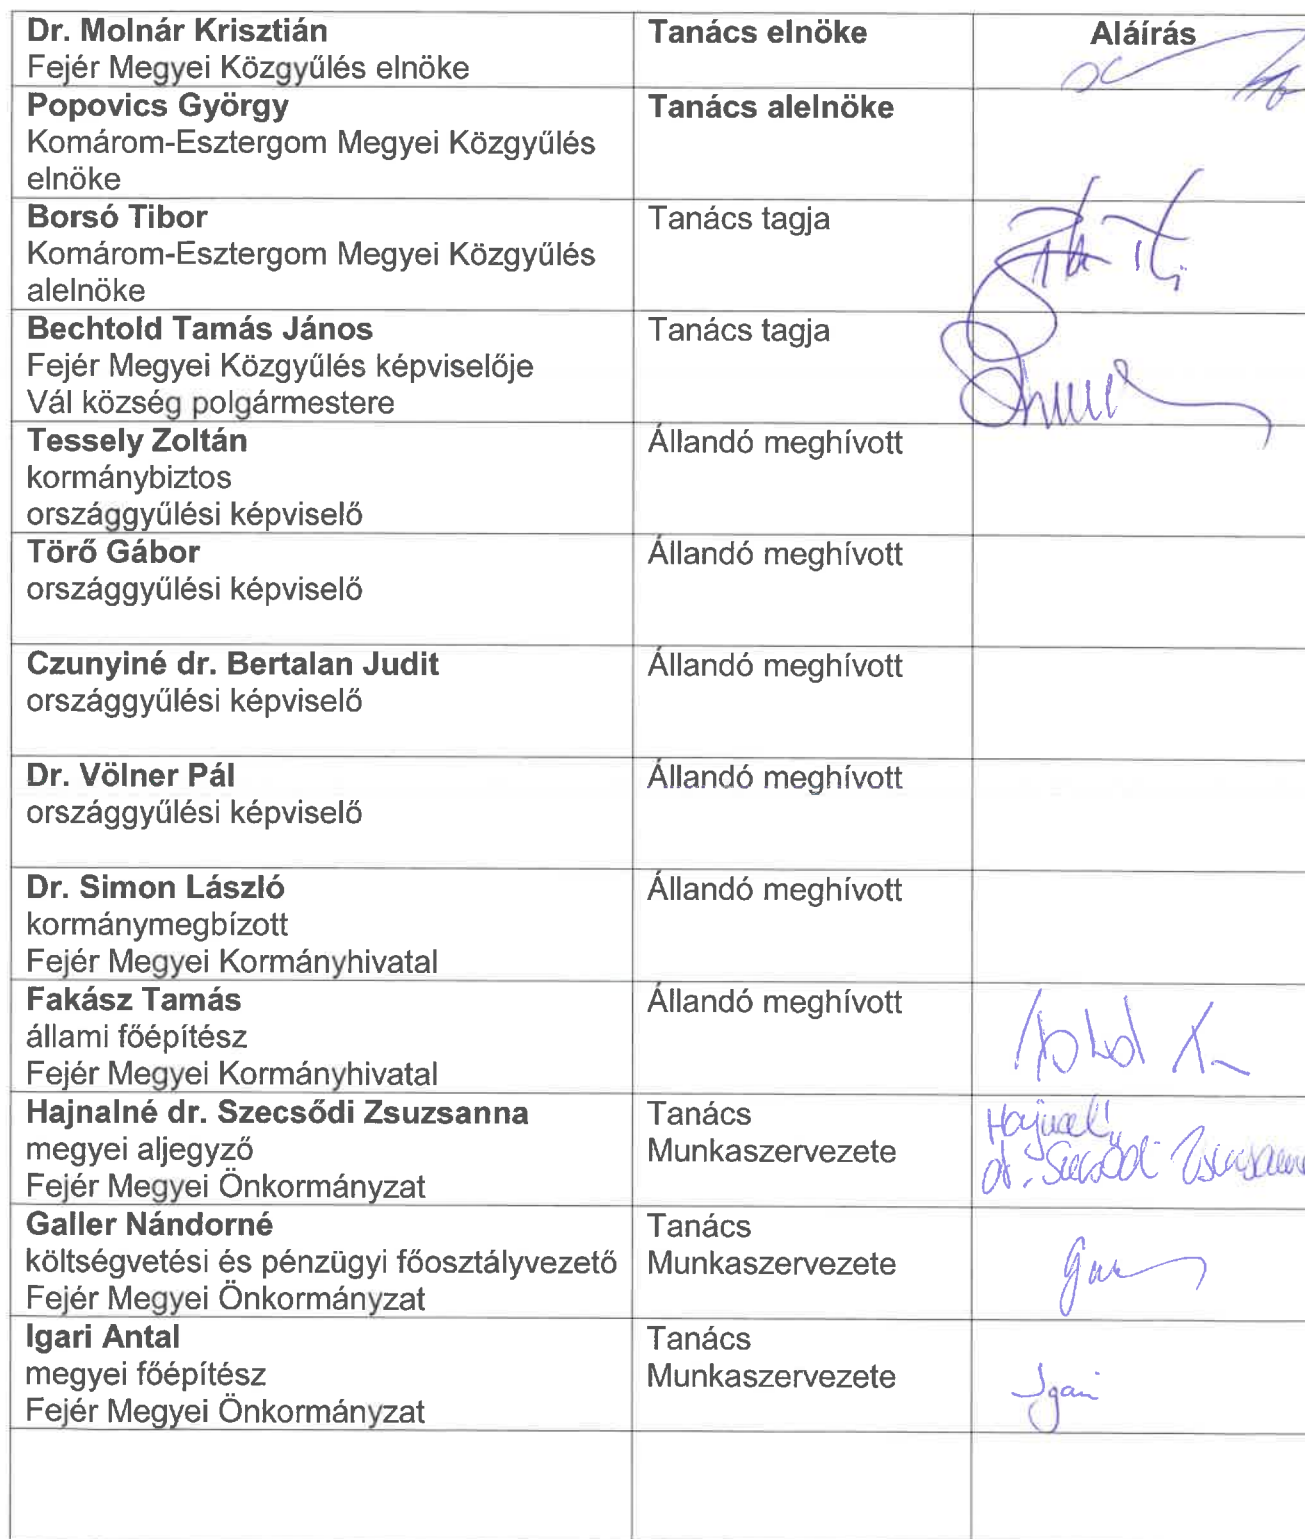 Dr. Molnár Krisztián
Fejér Megyei Közgyűlés elnöke
Tanács elnöke
Aláírás
Popovics György
Komárom-Esztergom Megyei Közgyűlés
elnöke
Tanács alelnöke
Borsó Tibor
Komárom-Esztergom Megyei Közgyűlés
alelnöke
Tanács tagja
Bechtold Tamás János
Fejér Megyei Közgyűlés képviselője
Vál község polgármestere
Tanács tagja
Tessely Zoltán
kormánybiztos
országgyűlési képviselő
Állandó meghívott
Törő Gábor
országgyűlési képviselő
Állandó meghívott
Czunyiné dr. Bertalan Judit
országgyűlési képviselő
Állandó meghívott
Dr. Völner Pál
országgyűlési képviselő
Állandó meghívott
Dr. Simon László
kormánymegbízott
Fejér Megyei Kormányhivatal
Állandó meghívott
Fakász Tamás
állami főépítész
Fejér Megyei Kormányhivatal
Állandó meghívott
Hajnalné dr. Szecsődi Zsuzsanna
megyei aljegyző
Fejér Megyei Önkormányzat
Tanács
Munkaszervezete
Galler Nándorné
költségvetési és pénzügyi főosztályvezető
Fejér Megyei Önkormányzat
Tanács
Munkaszervezete
Igari Antal
megyei főépítész
Fejér Megyei Önkormányzat
Tanács
Munkaszervezete
Igari